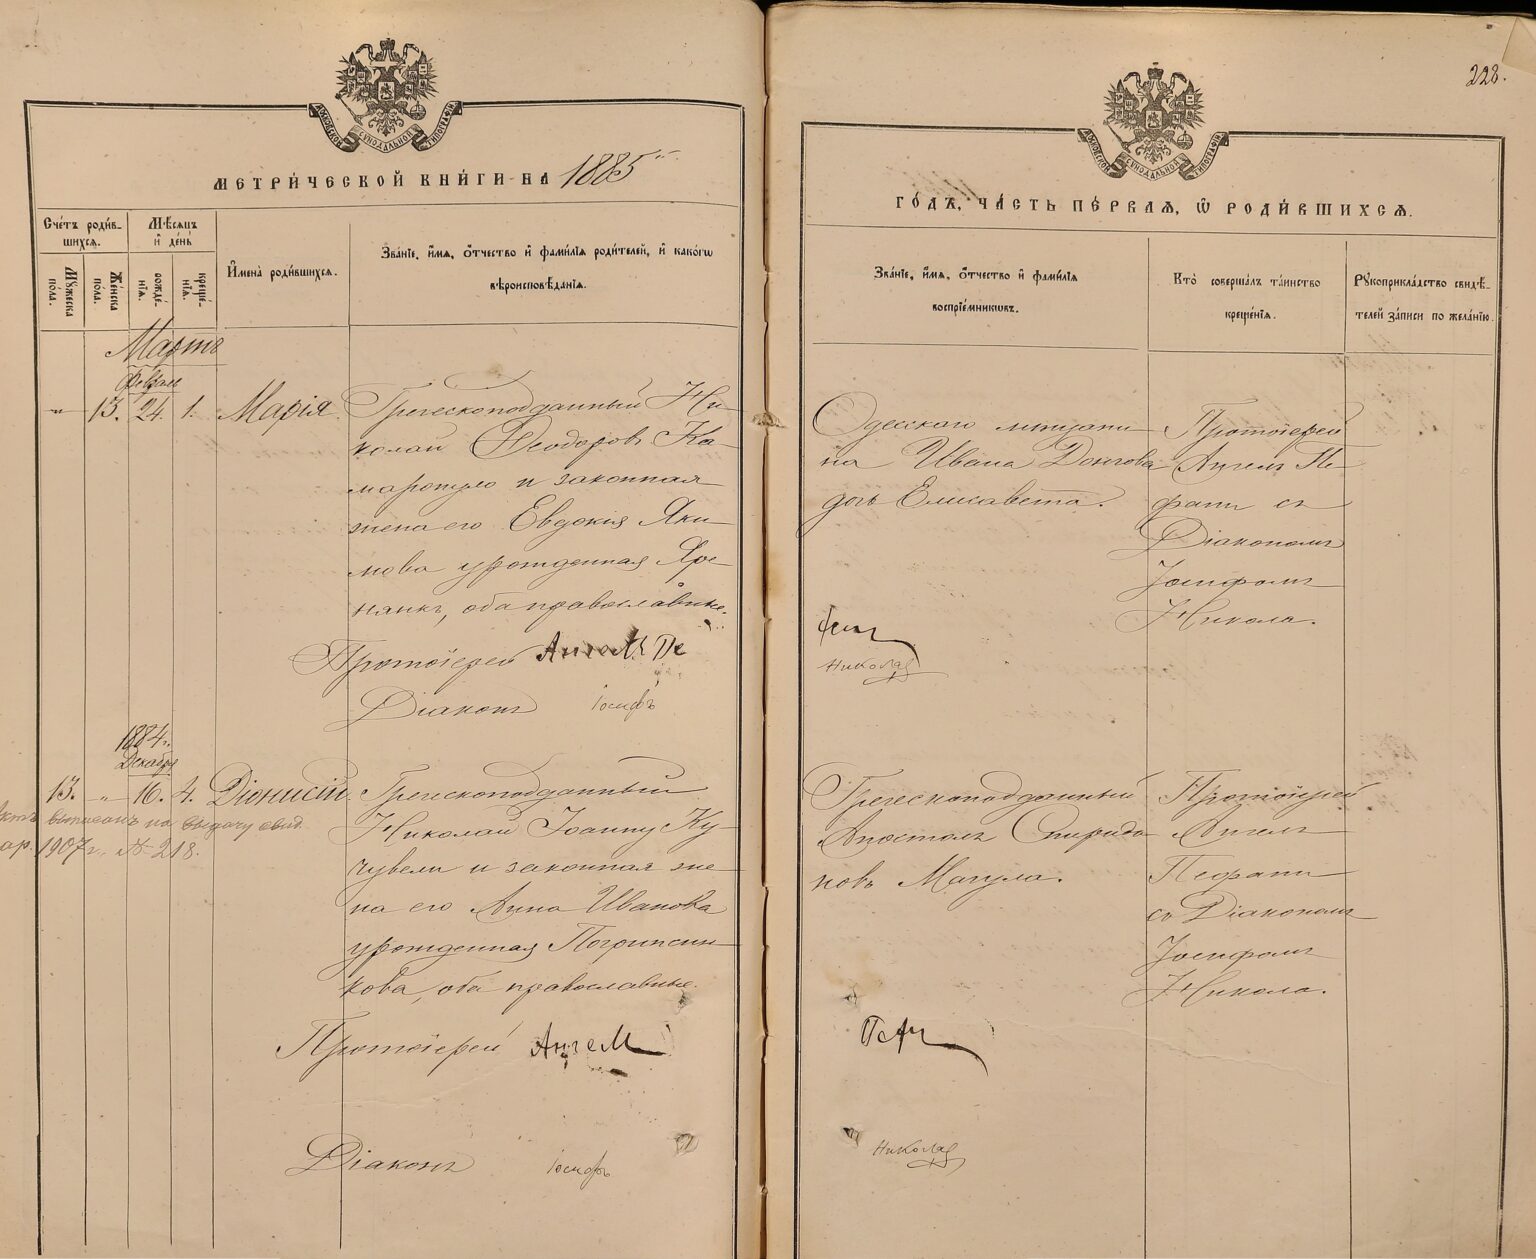 МОСКОВСКОЙ СѴНОДАЛЬНОЙ ТИПОГРАФІИ
МЕТРИ́ЧЕСКОЙ КНИ́ГИ НА 1885
Сче́тъ роди́в-
шихся.
Му́жеска
пола.
Же́нска
по́ла.
Мѣ́сяцъ
и҆ де́нь
рожде́-
нїя.
креще́-
нїя.
И҆мена̀ роди́вшихся.
Зва́нїе, и҆́мя, ѻ҆́тчество и҆ фами́лїя роди́телей, и҆ како́гѡ
вѣроисповѣ́данїя.
Мартъ
Феврал
" 13. 24. 1. Марія
Греческоподданный Ни-
колай Ѳеодоровъ Ка-
маропуло и законная
жена его Евдокія Яки-
мова урожденная Яре-
нянкъ, оба православные.
Протоіерей Ангелъ Пе
Діаконъ Іосифъ
1884 г.
Декабря
13. " 16. 4. Діонисій
Греческоподданный
Николай Іоанну Ку-
чувели и законная же-
на его Анна Иванова
урожденная
кова, оба православные.
актъ выписанъ на выдачу свид.
1907 г. № 218.
Протоіерей Ангел
Діаконъ Іосифъ
228.
МОСКОВСКОЙ СѴНОДАЛЬНОЙ ТИПОГРАФІИ
ГО́ДЪ, ЧА́СТЬ ПЕ́РВАЯ, Ѡ҆ РОДИ́ВШИХСЯ.
Зва́нїе, и҆́мя, ѻ҆́тчество и҆ фами́лїя
воспрїе́мникѡвъ.
Кто̀ соверша́лъ та́инство
креще́нїя.
Рꙋкоприкла́дство свидѣ́-
телей за́писи по жела́нїю.
Одесскаго мѣщани-
на Ивана Донгова
дочь Елисавета.
Протоіерей
Ангелъ Пе-
фани съ
Діакономъ
Іосифомъ
Никола.
Николая
Греческоподданный
Апостолъ Спиридо-
новъ Магула.
Протоіерей
Ангелъ
Пефани
съ Діакономъ
Іосифомъ
Никола.
Николая